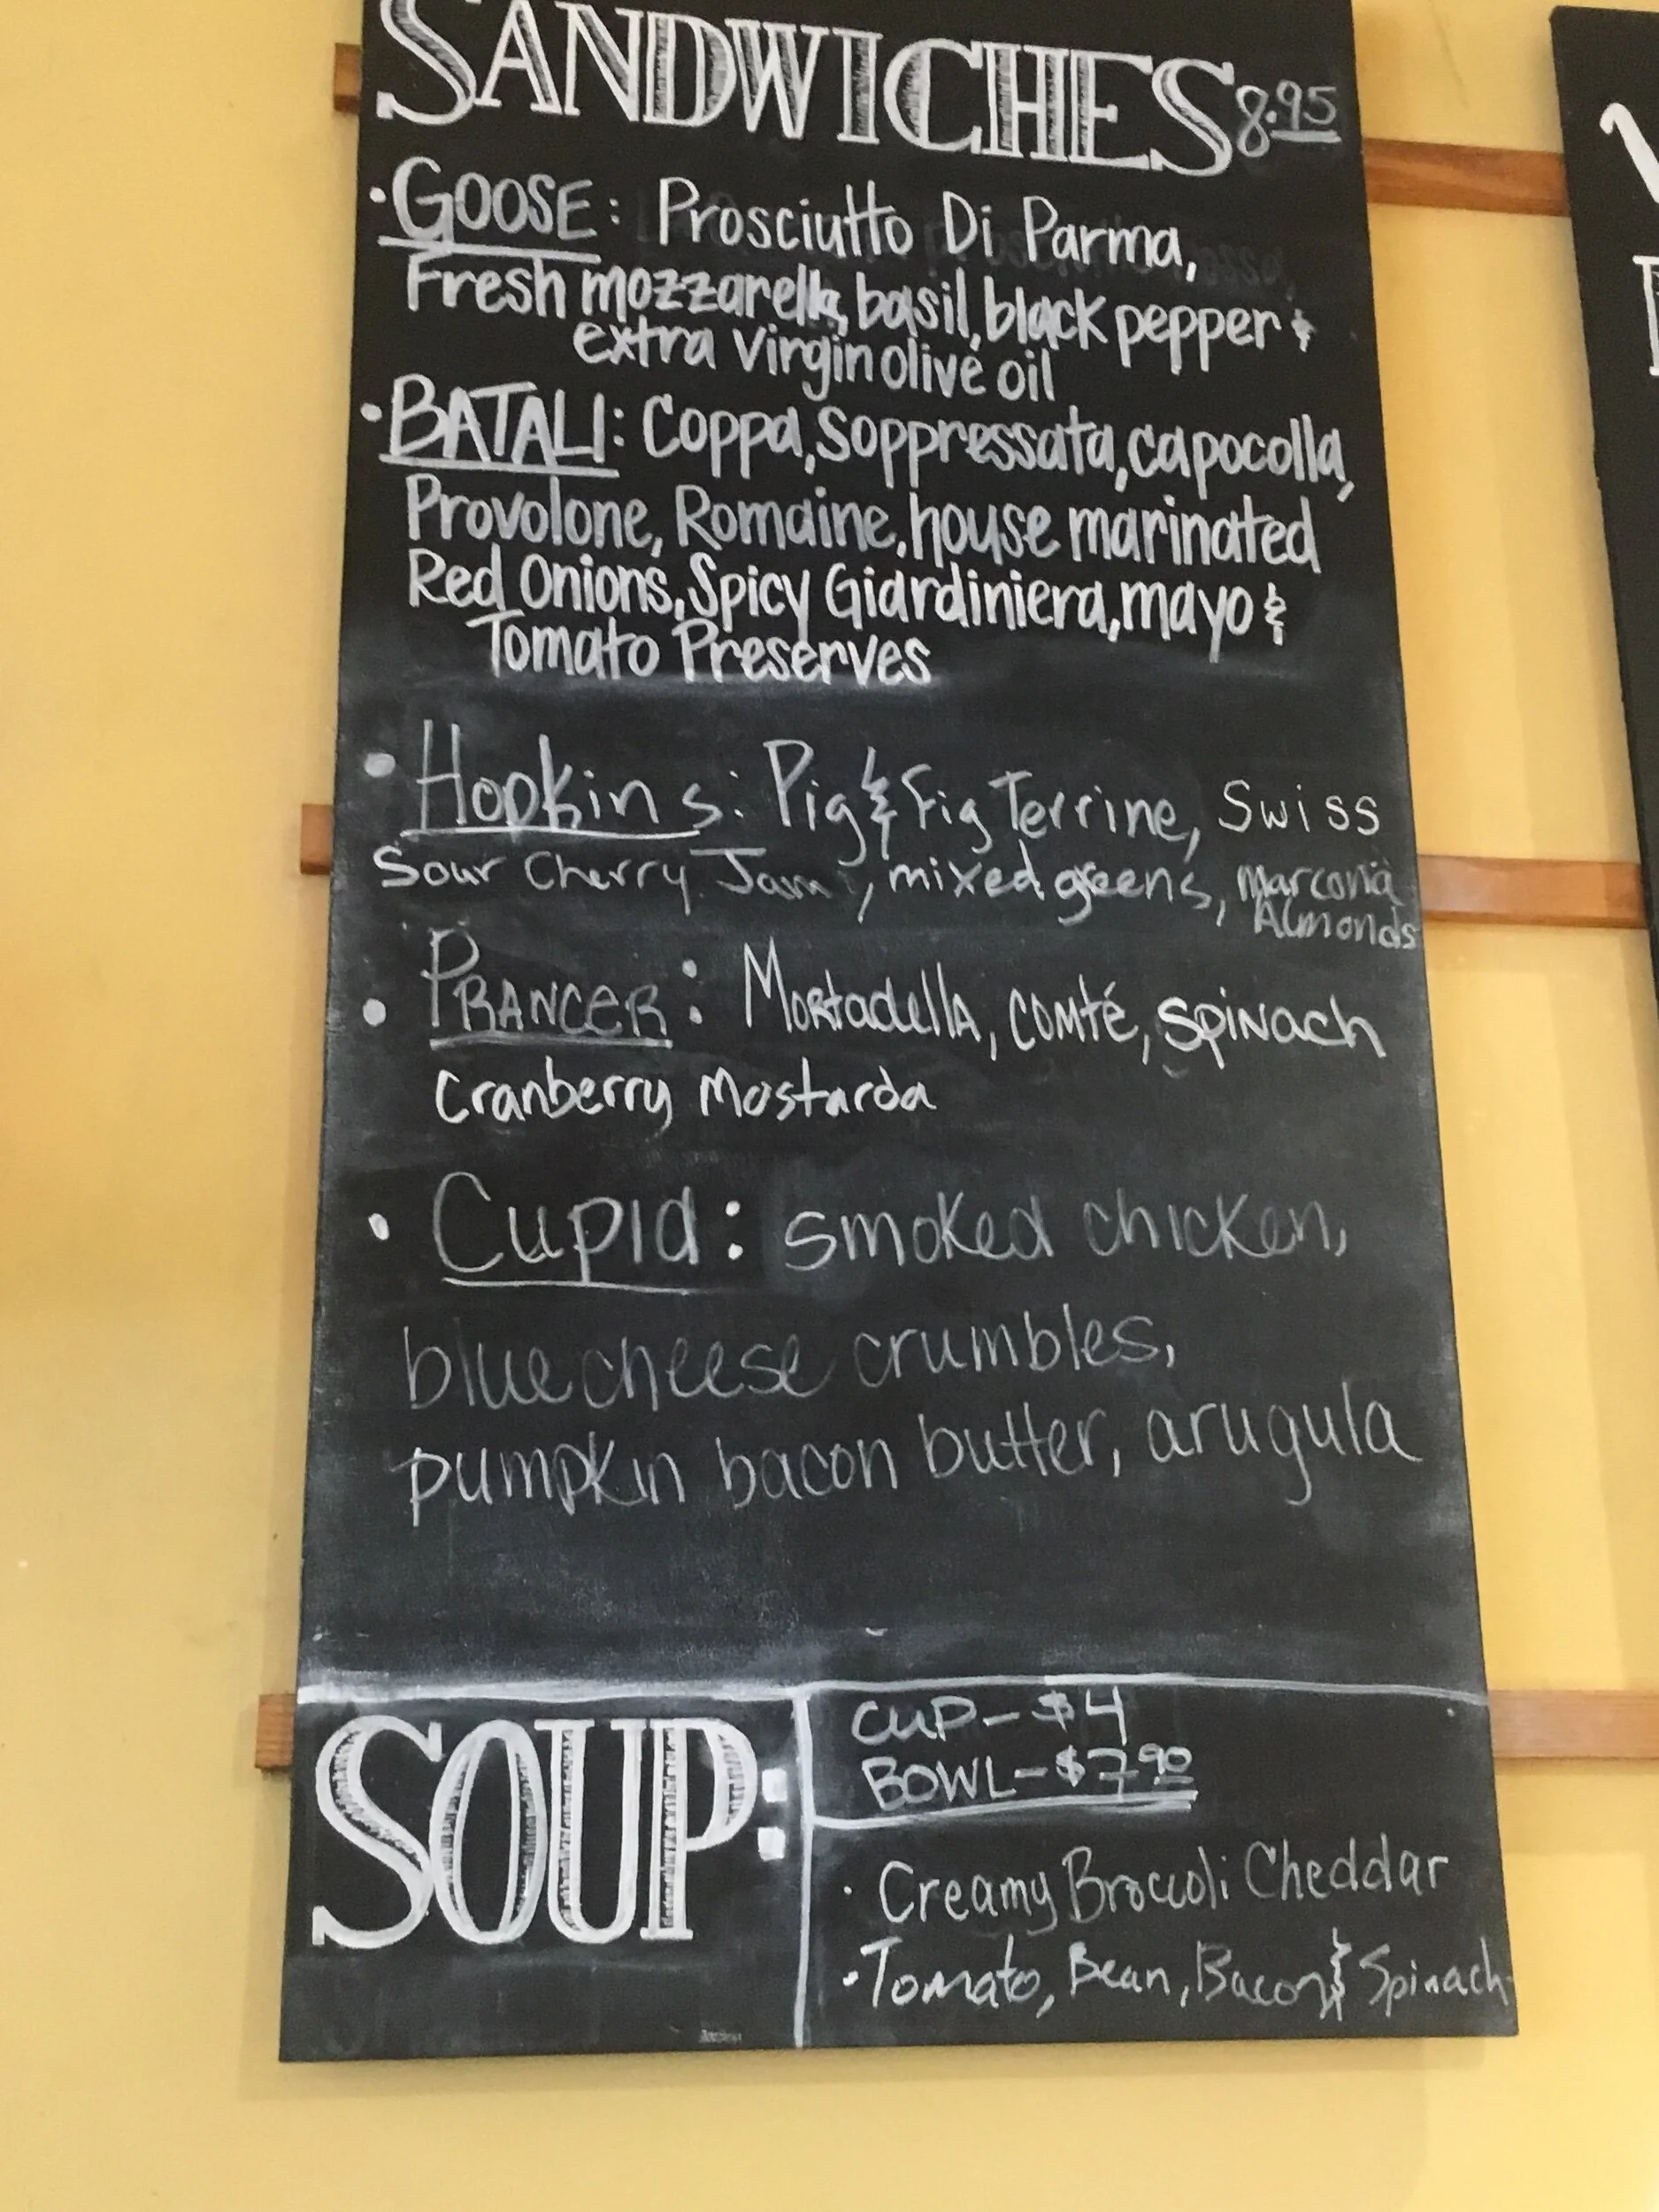 SANDWICHES 8.95
·GOOSE: Prosciutto Di Parma,
Fresh mozzarella, basil, black pepper &
extra virgin olive oil
·BATALI: Coppa, Soppressata, capocolla,
Provolone, Romaine, house marinated
Red Onions, Spicy Giardiniera, mayo &
Tomato Preserves
· Hopkins: Pig & Fig Terrine, Swiss
Sour Cherry Jam, mixed greens, marcona
Almonds
· PRANCER: Mortadella, comté, spinach
Cranberry Mostarda
· Cupid: smoked chicken,
blue cheese crumbles,
pumpkin bacon butter, arugula
SOUP:
CUP-$4
BOWL-$7.90
· Creamy Broccoli Cheddar
· Tomato, Bean, Bacon & Spinach